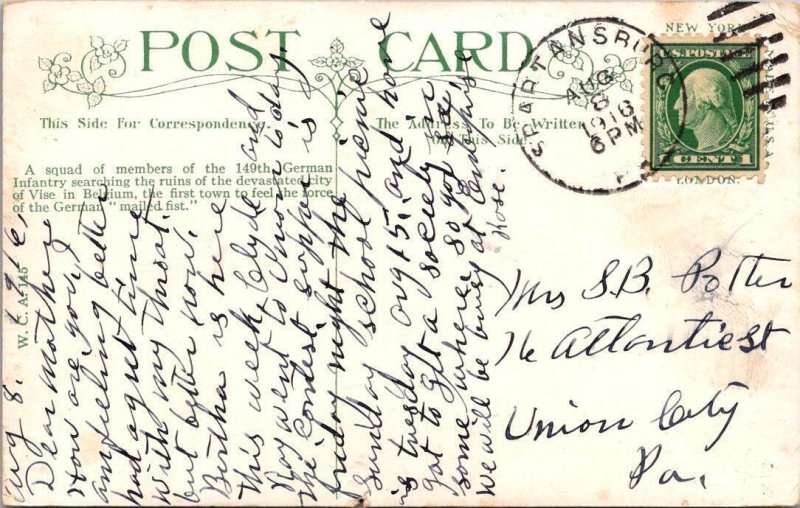 POST CARD
NEW YORK
This Side For Correspondence.
The Address To Be Written
On This Side.
A squad of members of the 149th German
Infantry searching the ruins of the devastated city
of Vise in Belgium, the first town to feel the force
of the German "mailed fist."
W. C. A. 145
SPARTANSBURG
AUG
8
1916
6 PM
U.S. POSTAGE
1 CENT 1
LONDON.
Aug 8. 1916,
Dear Mother
How are you,
am feeling better
had a quet time
with my throat.
but better now.
Bertha is here
This week, Clyde and
Ray went to Union today.
The Contest suppe is
friday night the
sunday school picnic
is tuesday aug 15. and have
got to get a society in
some where. so you see
we will be busy at
Rose.
Mrs S. B. Potter
16 Atlantic st
Union City
Pa.